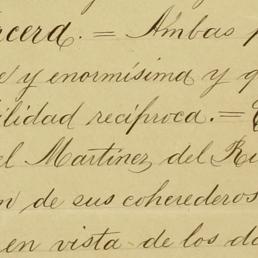 rcera. = Ambas p
e y enormísima y q
ilidad recíproca. =
el Martínez del Rí
n de sus coherederos
en vista de los do